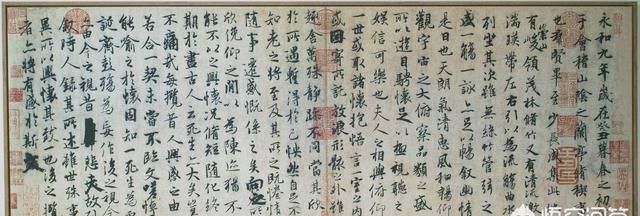 永和九年歲在癸丑暮春之初
于會稽山陰之蘭亭脩稧事
也羣賢畢至少長咸集此
有崇山峻領茂林脩竹又有清流激
湍暎帶左右引以為流觴曲水
列坐其次雖無絲竹管弦之
盛一觴一詠亦足以暢敘幽情
是日也天朗氣清惠風和暢仰
觀宇宙之大俯察品類之盛
所以遊目騁懷足以極視聽之
娛信可樂也夫人之相與俯仰
一世或取諸懷抱悟言一室之內
或因寄所託放浪形骸之外雖
趣舍萬殊靜躁不同當其欣
於所遇蹔得於己怏然自足不
知老之將至及其所之既惓情
隨事遷感慨係之矣向之所
欣俛仰之間以為陳迹猶不
能不以之興懷況脩短隨化終
期於盡古人云死生亦大矣豈
不痛哉每攬昔人興感之由
若合一契未嘗不臨文嗟悼不
能喻之於懷固知一死生為虛
誕齊彭殤為妄作後之視今
亦由今之視昔悲夫故列
敘時人錄其所述雖世殊事
異所以興懷其致一也後之攬
者亦將有感於斯文
悟空问答